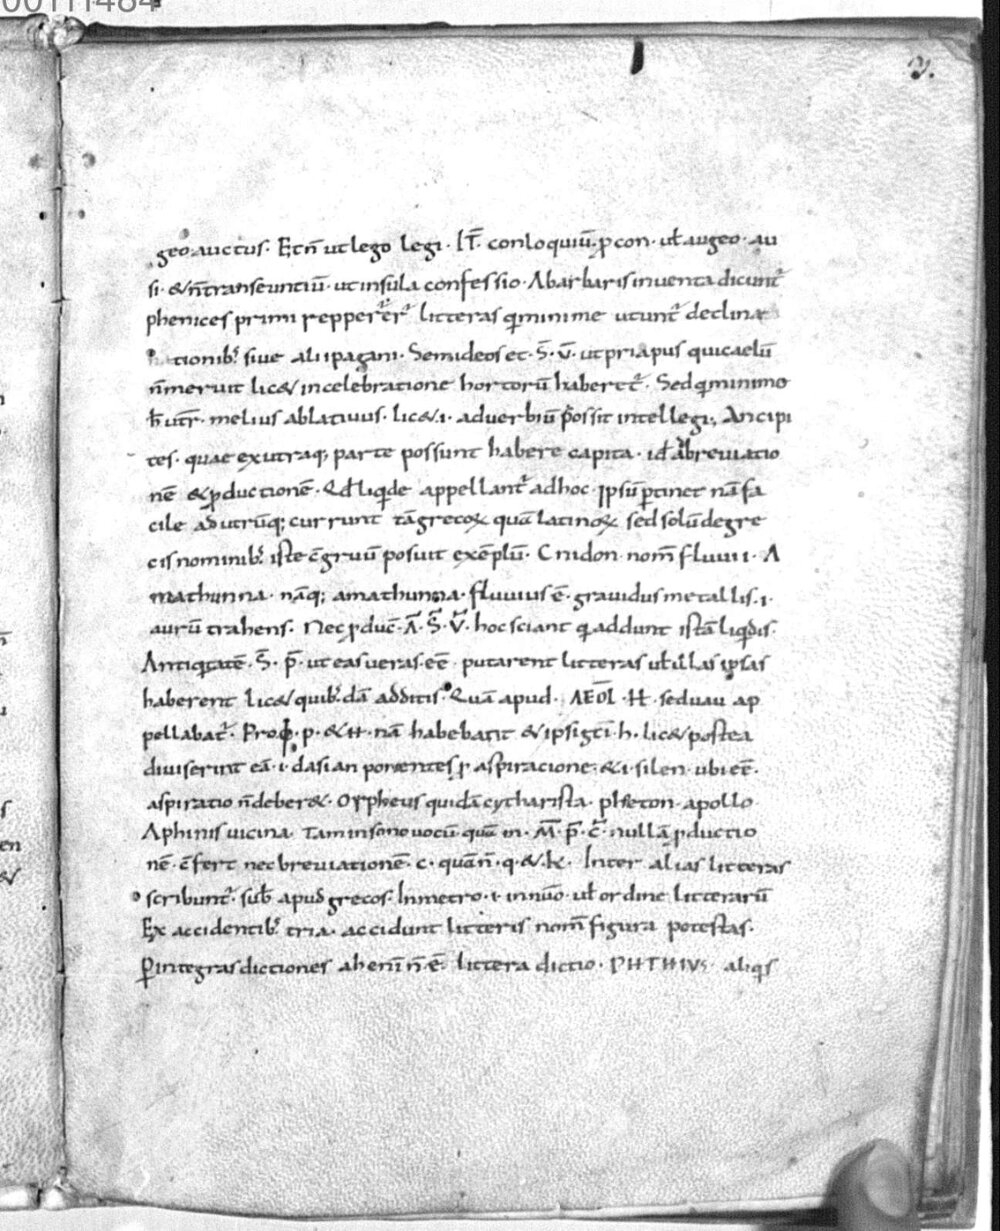 00111484
2.
geo· auctus· Et n̄ ut lego legi· IT̄· conloquiū· ꝓ con· ul̄ augeo· au
si· & n̄ transeuntiū· ut insula confessio· A barbaris inuenta dicunt᷑
phenices primi reppererr᷑ litteras q minime utunt᷑ declina
tionib; siue alii pagani· Semideos et· S̄· V̄· ut priapus qui caelū
n̄ meruit lic& in celebratione hortorū haberet᷑· Sed q minimo
melius ablatiuus· lic&· i· aduerbiū possit intellegi; Ancipi
tes· quae ex utraq; parte possunt habere capita· id abreuiatio
nē & ꝓductionē· Qd̄ liqde appellant᷑ ad hoc· Ipsū ꝑtinet nā fa
cile ad utrūq; currunt tā grecoꝝ quā latinoꝝ sed solū de gre
cis nominib; iste c̄gruū posuit exēplū· Cnidon· nom̄ fluuii· A
mathunna· nāq; amathunna· fluuius ē· grauidus metallis· i·
aurū trahens· Nec ꝓduc̄· A̅· S̄· V̄· hoc sciant q addunt istā liqdis·
Antiqtatē· S̄· p̄· ut eas ueras eē· putarent litteras ul̄ illas ipsas
haberent lic& quib; dā additis· Quā apud· AEOL̄· H· sed uau ap
pellabat᷑· Pro ɸ· p· & H· nā habebant & ipsi gti· h· lic& postea
diuiserunt eā· i· dasian ponentes ꝓ aspiracione· & i· silen· ubi eē·
aspiratio n̄ deber&· Orpheus quidā cytharista· pheton· apollo
Aphinis uicina· Tam in sono uocū quā in· M̄· p̄· c̄· nullā ꝓductio
nē· c̄fert nec breuiationē· c· quān̄· q· & k· Inter alias litteras
scribunt᷑· sub apud grecos· In metro· i· in nūo· ul̄ ordine litterarū
Ex accidentib; tria· accidunt litteris nom̄ figura potestas·
Ꝑ integras dictiones ah enī n̄ ē· littera dictio· PHTHIVS· aliqs